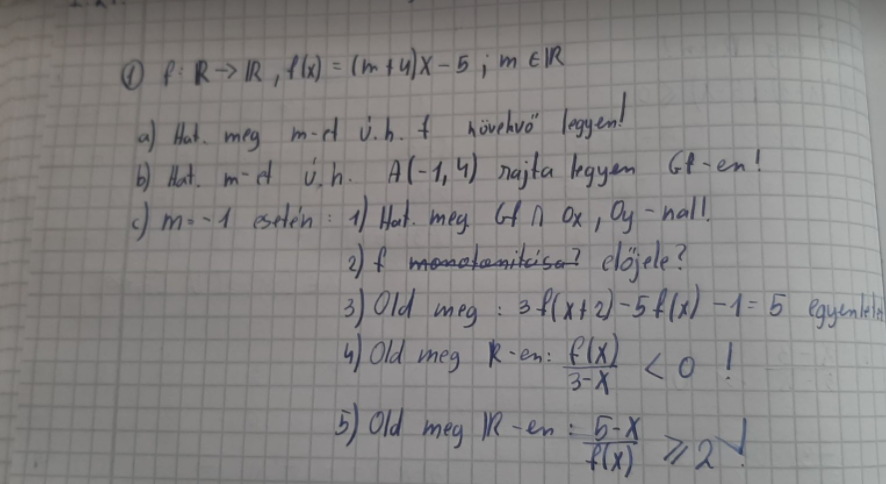 ① f: R → R, f(x) = (m+4)x - 5 ; m ∈ R
a) Hat. meg m-et ú.h. f növekvő legyen!
b) Hat. m-et ú.h. A(-1, 4) rajta legyen Gf-en!
c) m=-1 esetén: 1) Hat. meg Gf ∩ Ox, Oy-nal!
2) f előjele?
3) Old meg: 3f(x+2) - 5f(x) - 1 = 5
4) Old meg R-en: f(x)/(3-x) < 0 !
5) Old meg R-en: (5-x)/f(x) ≥ 2 !